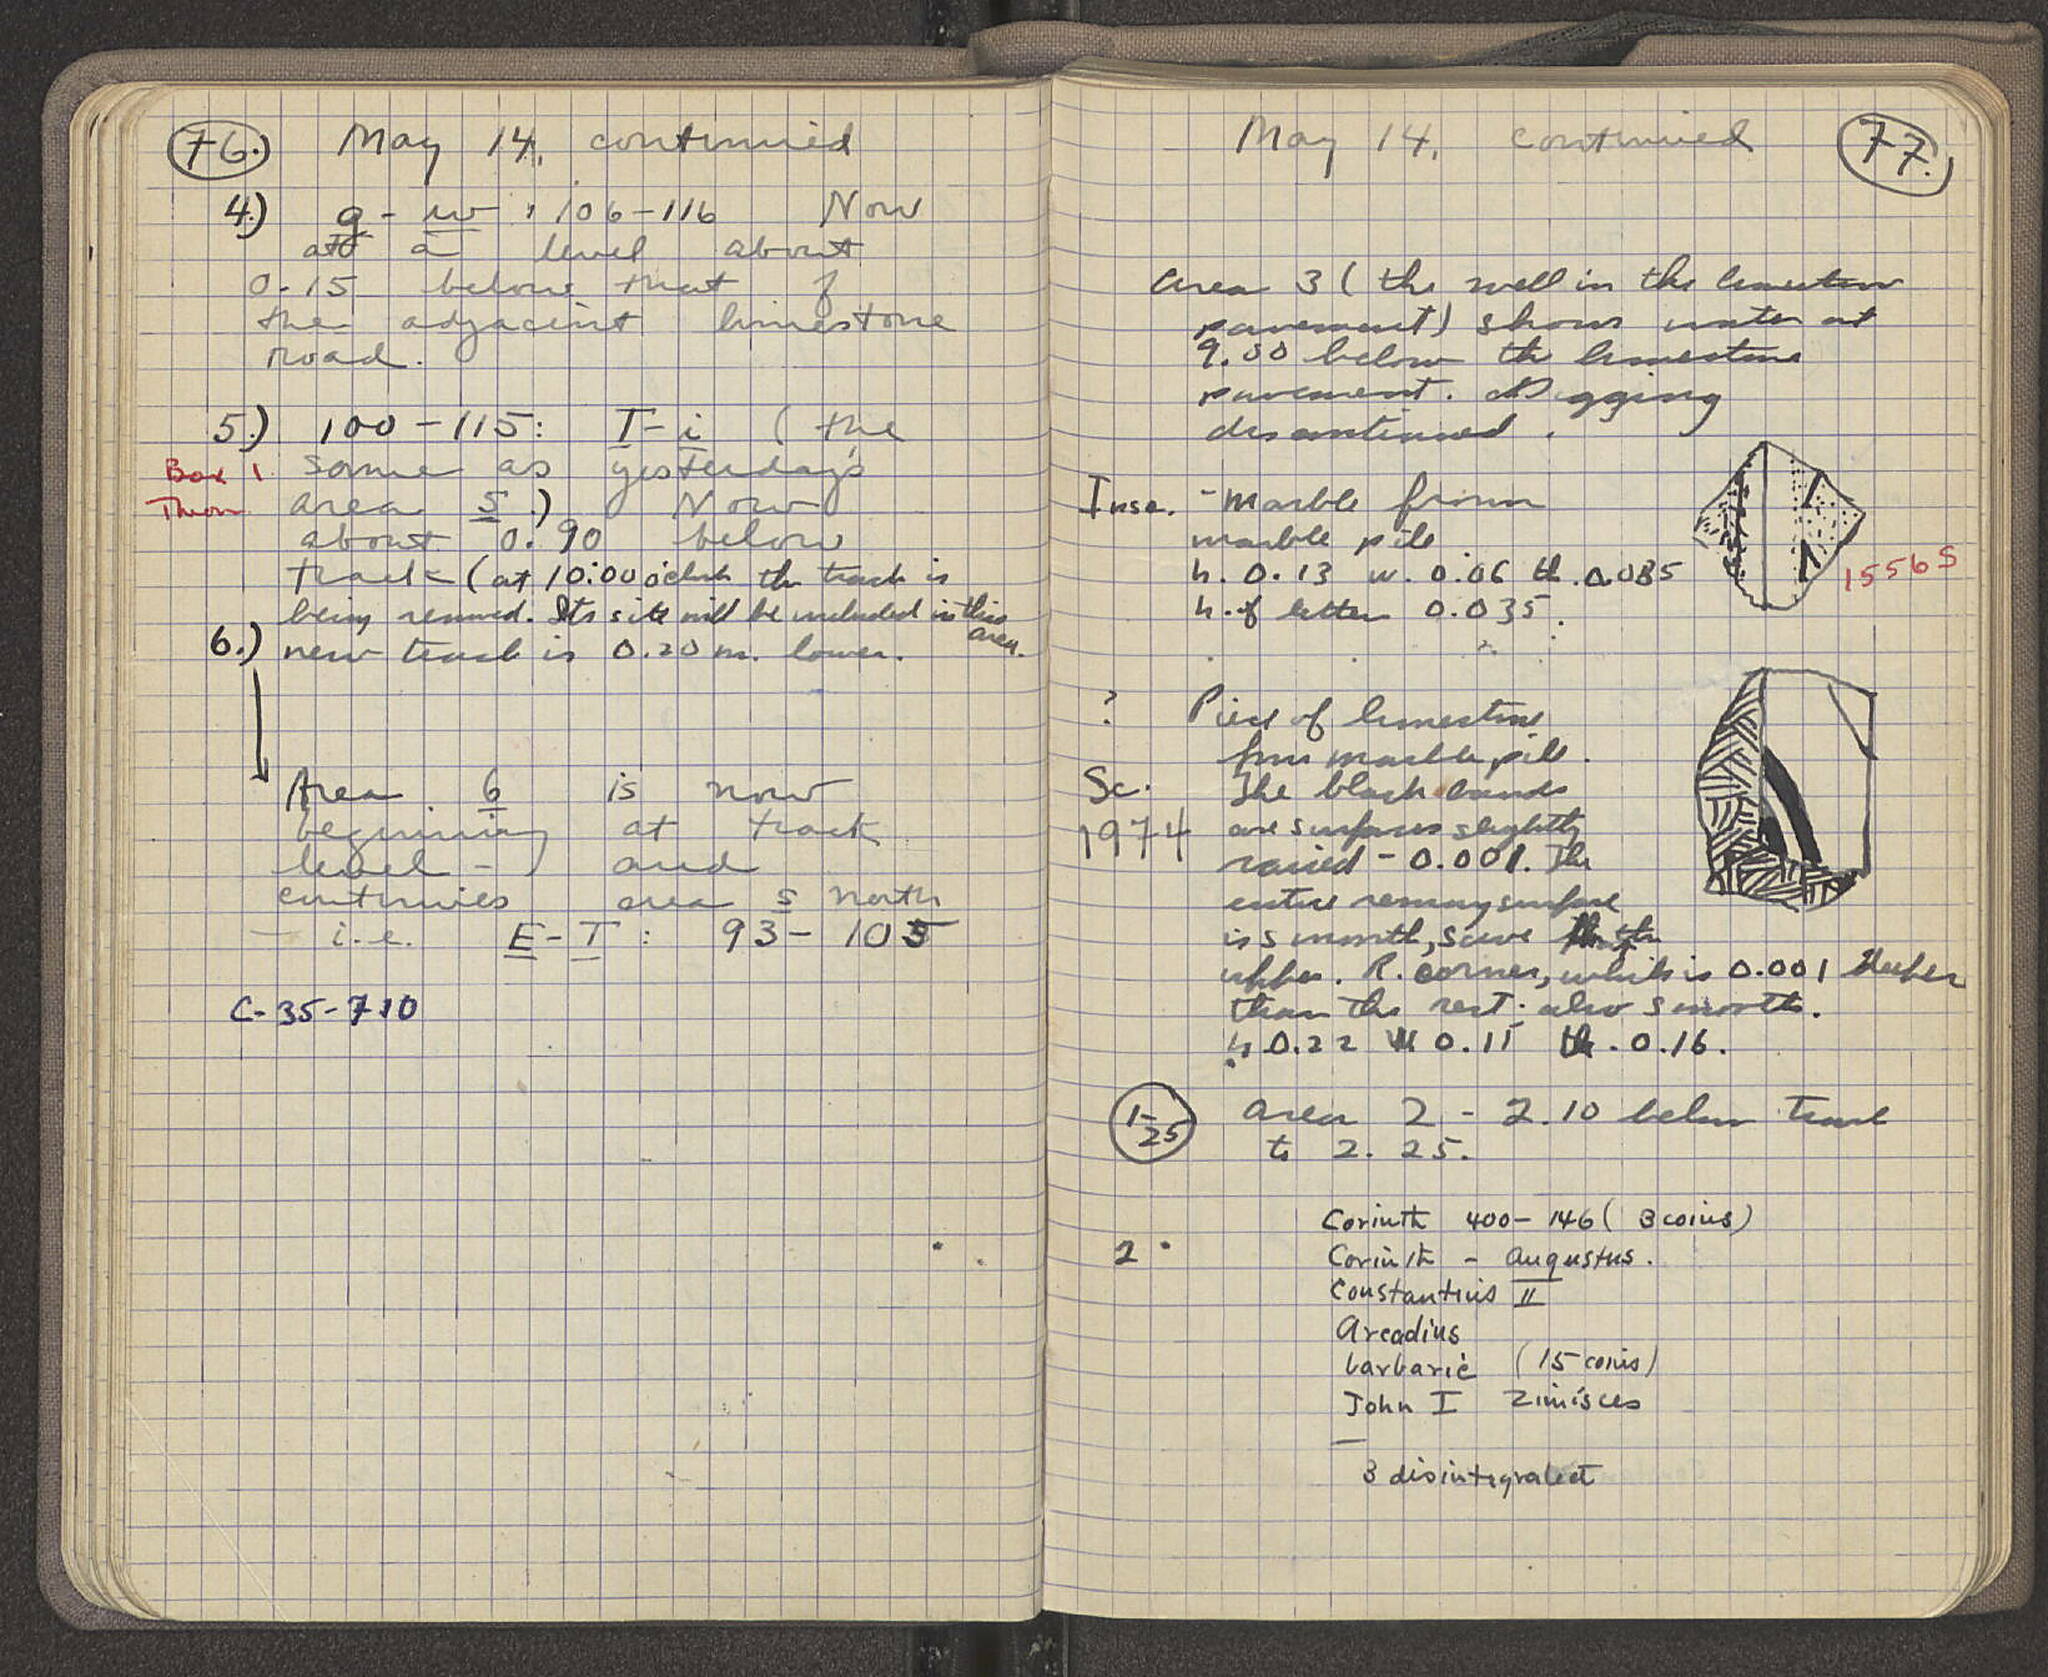 76.) May 14, continued
4.) g - w : 106-116 Now
at a level about
0.15 below that of
the adjacent limestone
road.
5.) 100-115: T-i (the
Box 1 same as yesterday's
Throw area 5.) Now
about 0.90 below
track (at 10:00 o'clock the track is
being removed. Its site will be included in this area.
6.) new track is 0.20 m. lower.
Area 6 is now
beginning at track
level - and
continues area 5 north
- i.e. E-T : 93-105
C-35-710
May 14, continued 77.
Area 3 (the well in the limestone
pavement) shows water at
9.00 below the limestone
pavement. Digging
discontinued.
Insc. - Marble from
marble pile
h. 0.13 w. 0.06 th. 0.085
h. of letter 0.035.
1556 S
? Piece of limestone
from marble pile.
Sc. The black bands
1974 are surfaces slightly
raised - 0.001. The
entire remaining surface
is smooth, save the
upper R. corner, which is 0.001 deeper
than the rest: also smooth.
h 0.22 w 0.11 th. 0.16.
1-25 Area 2 - 2.10 below track
to 2.25.
Corinth 400-146 (3 coins)
2 Corinth - Augustus.
Constantius II
Arcadius
barbaric (15 coins)
John I Zimisces
—
3 disintegrated